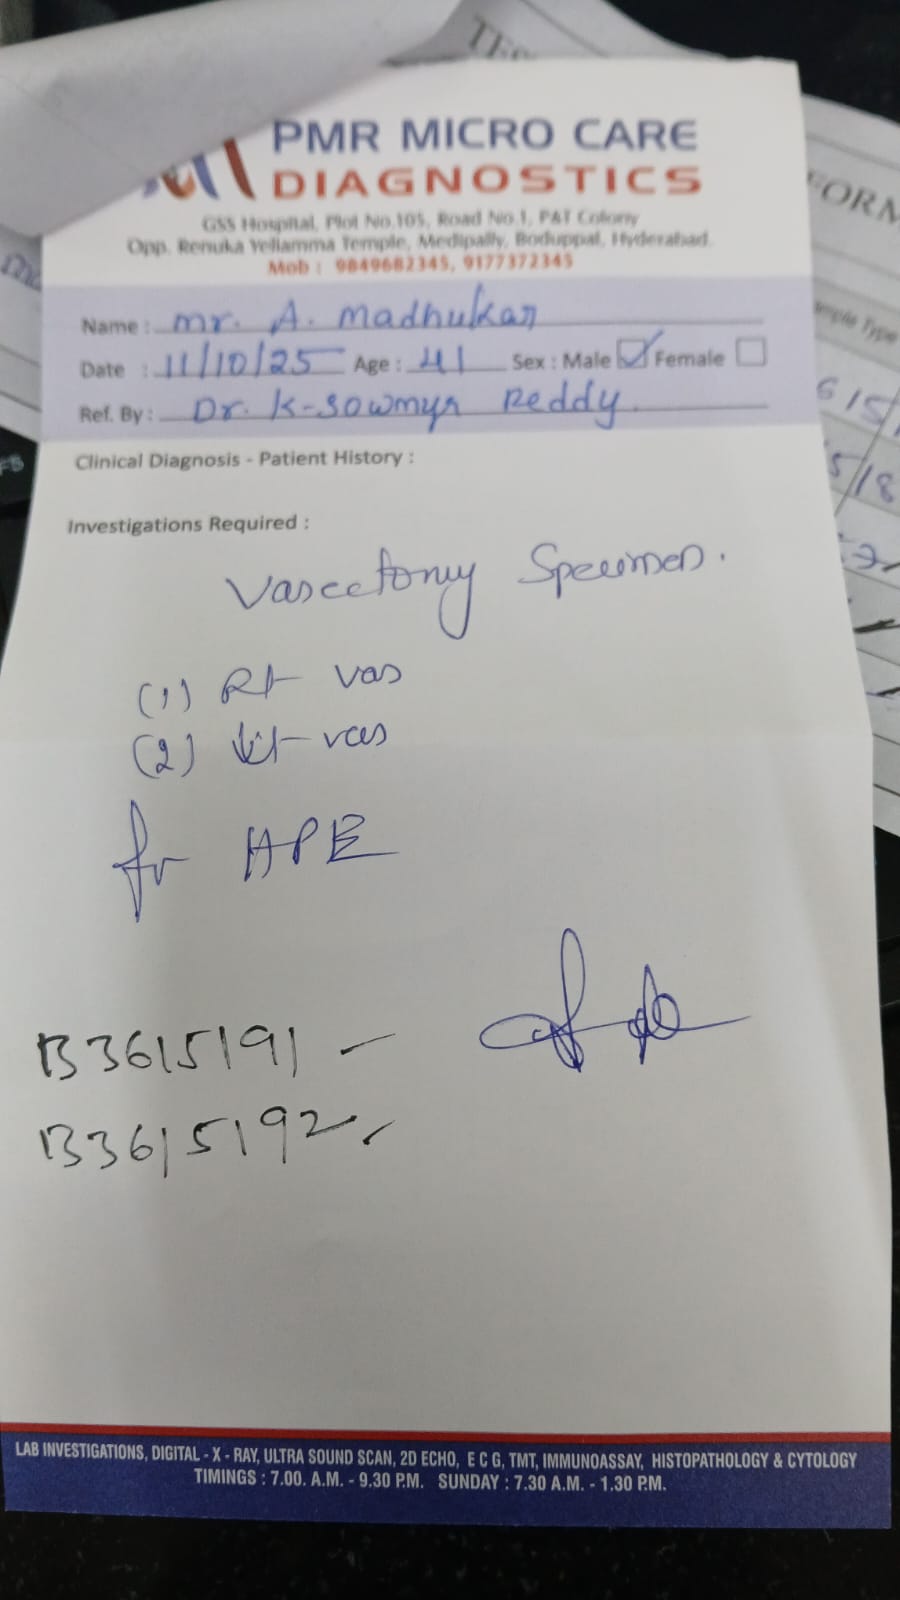 TE
PMR MICRO CARE
DIAGNOSTICS
GSS Hospital, Plot No.105, Road No.1, P&T Colony
Opp. Renuka Yellamma Temple, Medipally, Boduppal, Hyderabad.
Mob : 9849682345, 9177372345
Name : mr. A. madhukar
Date : 11/10/25 Age : 41 Sex : Male ☑ Female ☐
Ref. By : Dr. K-sowmya Reddy
Clinical Diagnosis - Patient History :
Investigations Required :
Vasectomy Specimen.
(1) Rt vas
(2) Lt vas
for HPE
B3615191 -
B3615192
LAB INVESTIGATIONS, DIGITAL - X - RAY, ULTRA SOUND SCAN, 2D ECHO, E C G, TMT, IMMUNOASSAY, HISTOPATHOLOGY & CYTOLOGY
TIMINGS : 7.00. A.M. - 9.30 P.M. SUNDAY : 7.30 A.M. - 1.30 P.M.
FORM
mple Type
615
5/8
F5